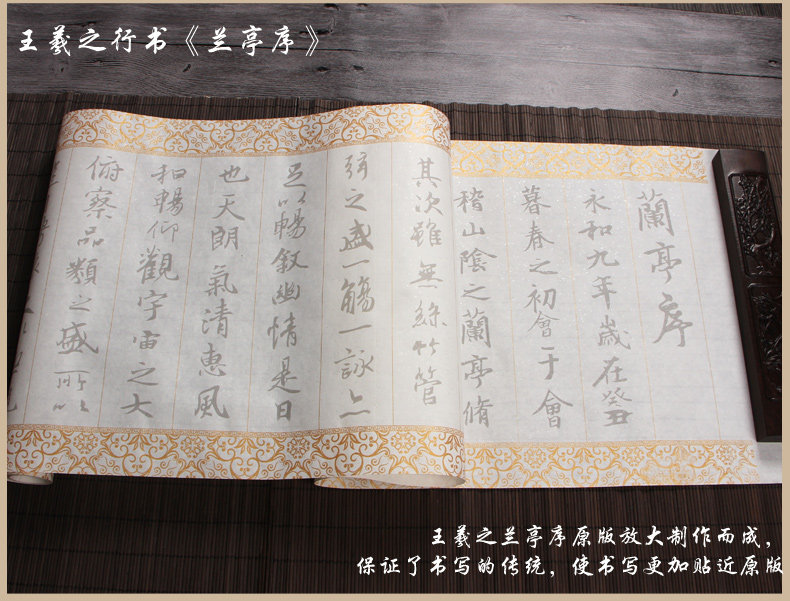 王羲之行书《兰亭序》
蘭亭序
永和九年歲在癸丑
暮春之初會于會
稽山陰之蘭亭脩
其次雖無絲竹管
弦之盛一觴一詠亦
足以暢叙幽情是日
也天朗氣清惠風
和暢仰觀宇宙之大
俯察品類之盛所以
王羲之兰亭序原版放大制作而成，
保证了书写的传统，使书写更加贴近原版